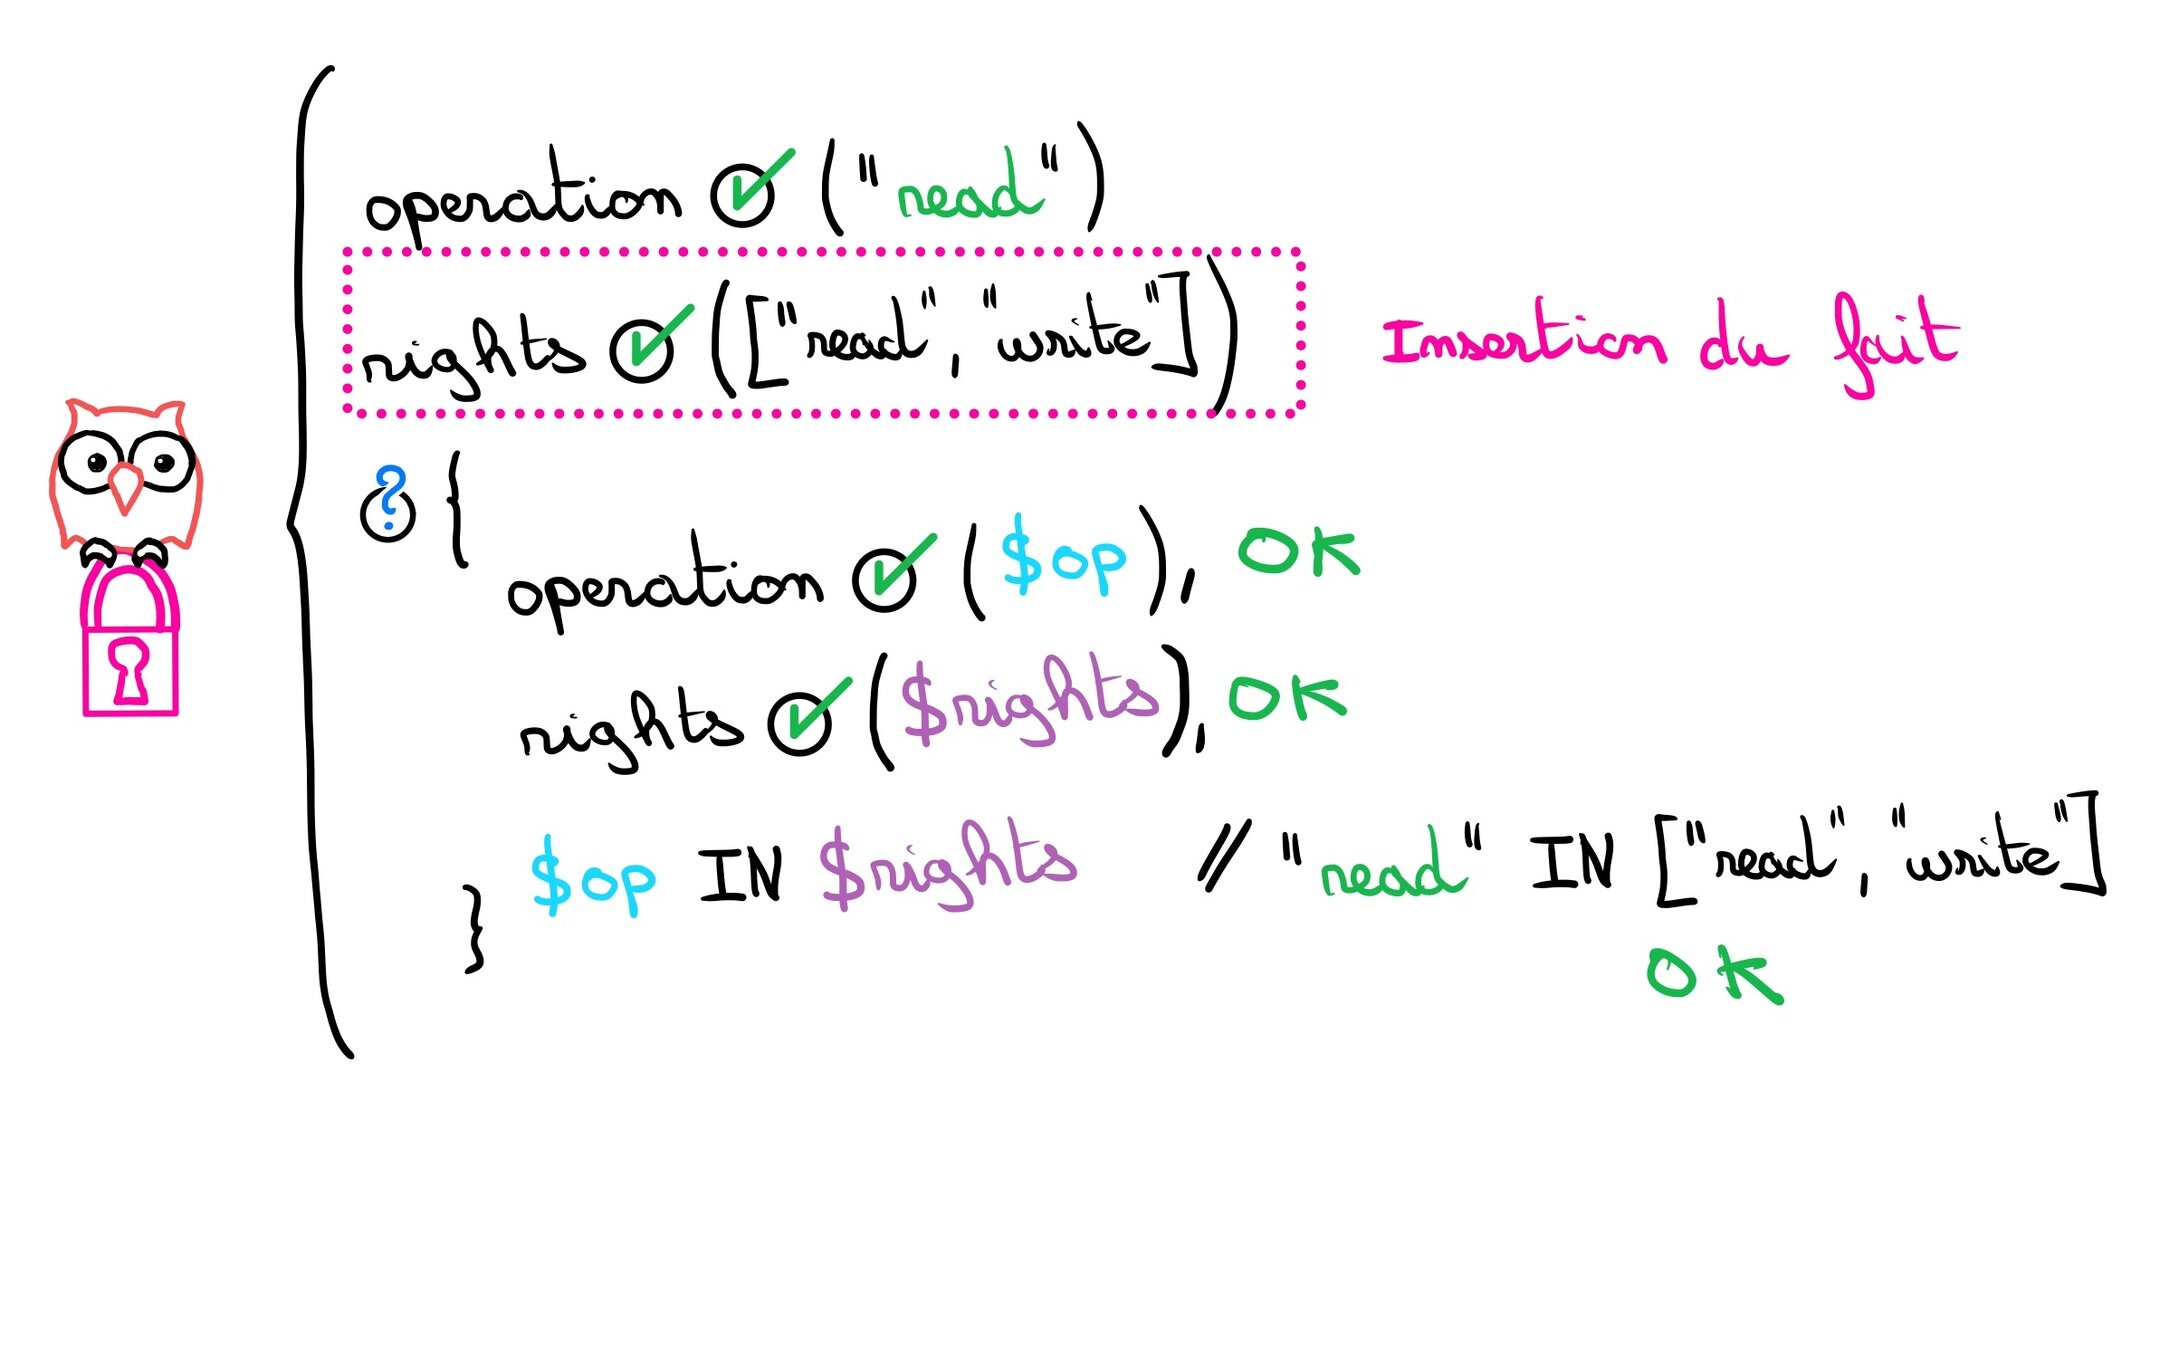 operation ("read")
rights (["read", "write"]) Insertion du fait
? {
operation ($op), OK
rights ($rights), OK
$op IN $rights // "read" IN ["read", "write"]
} OK